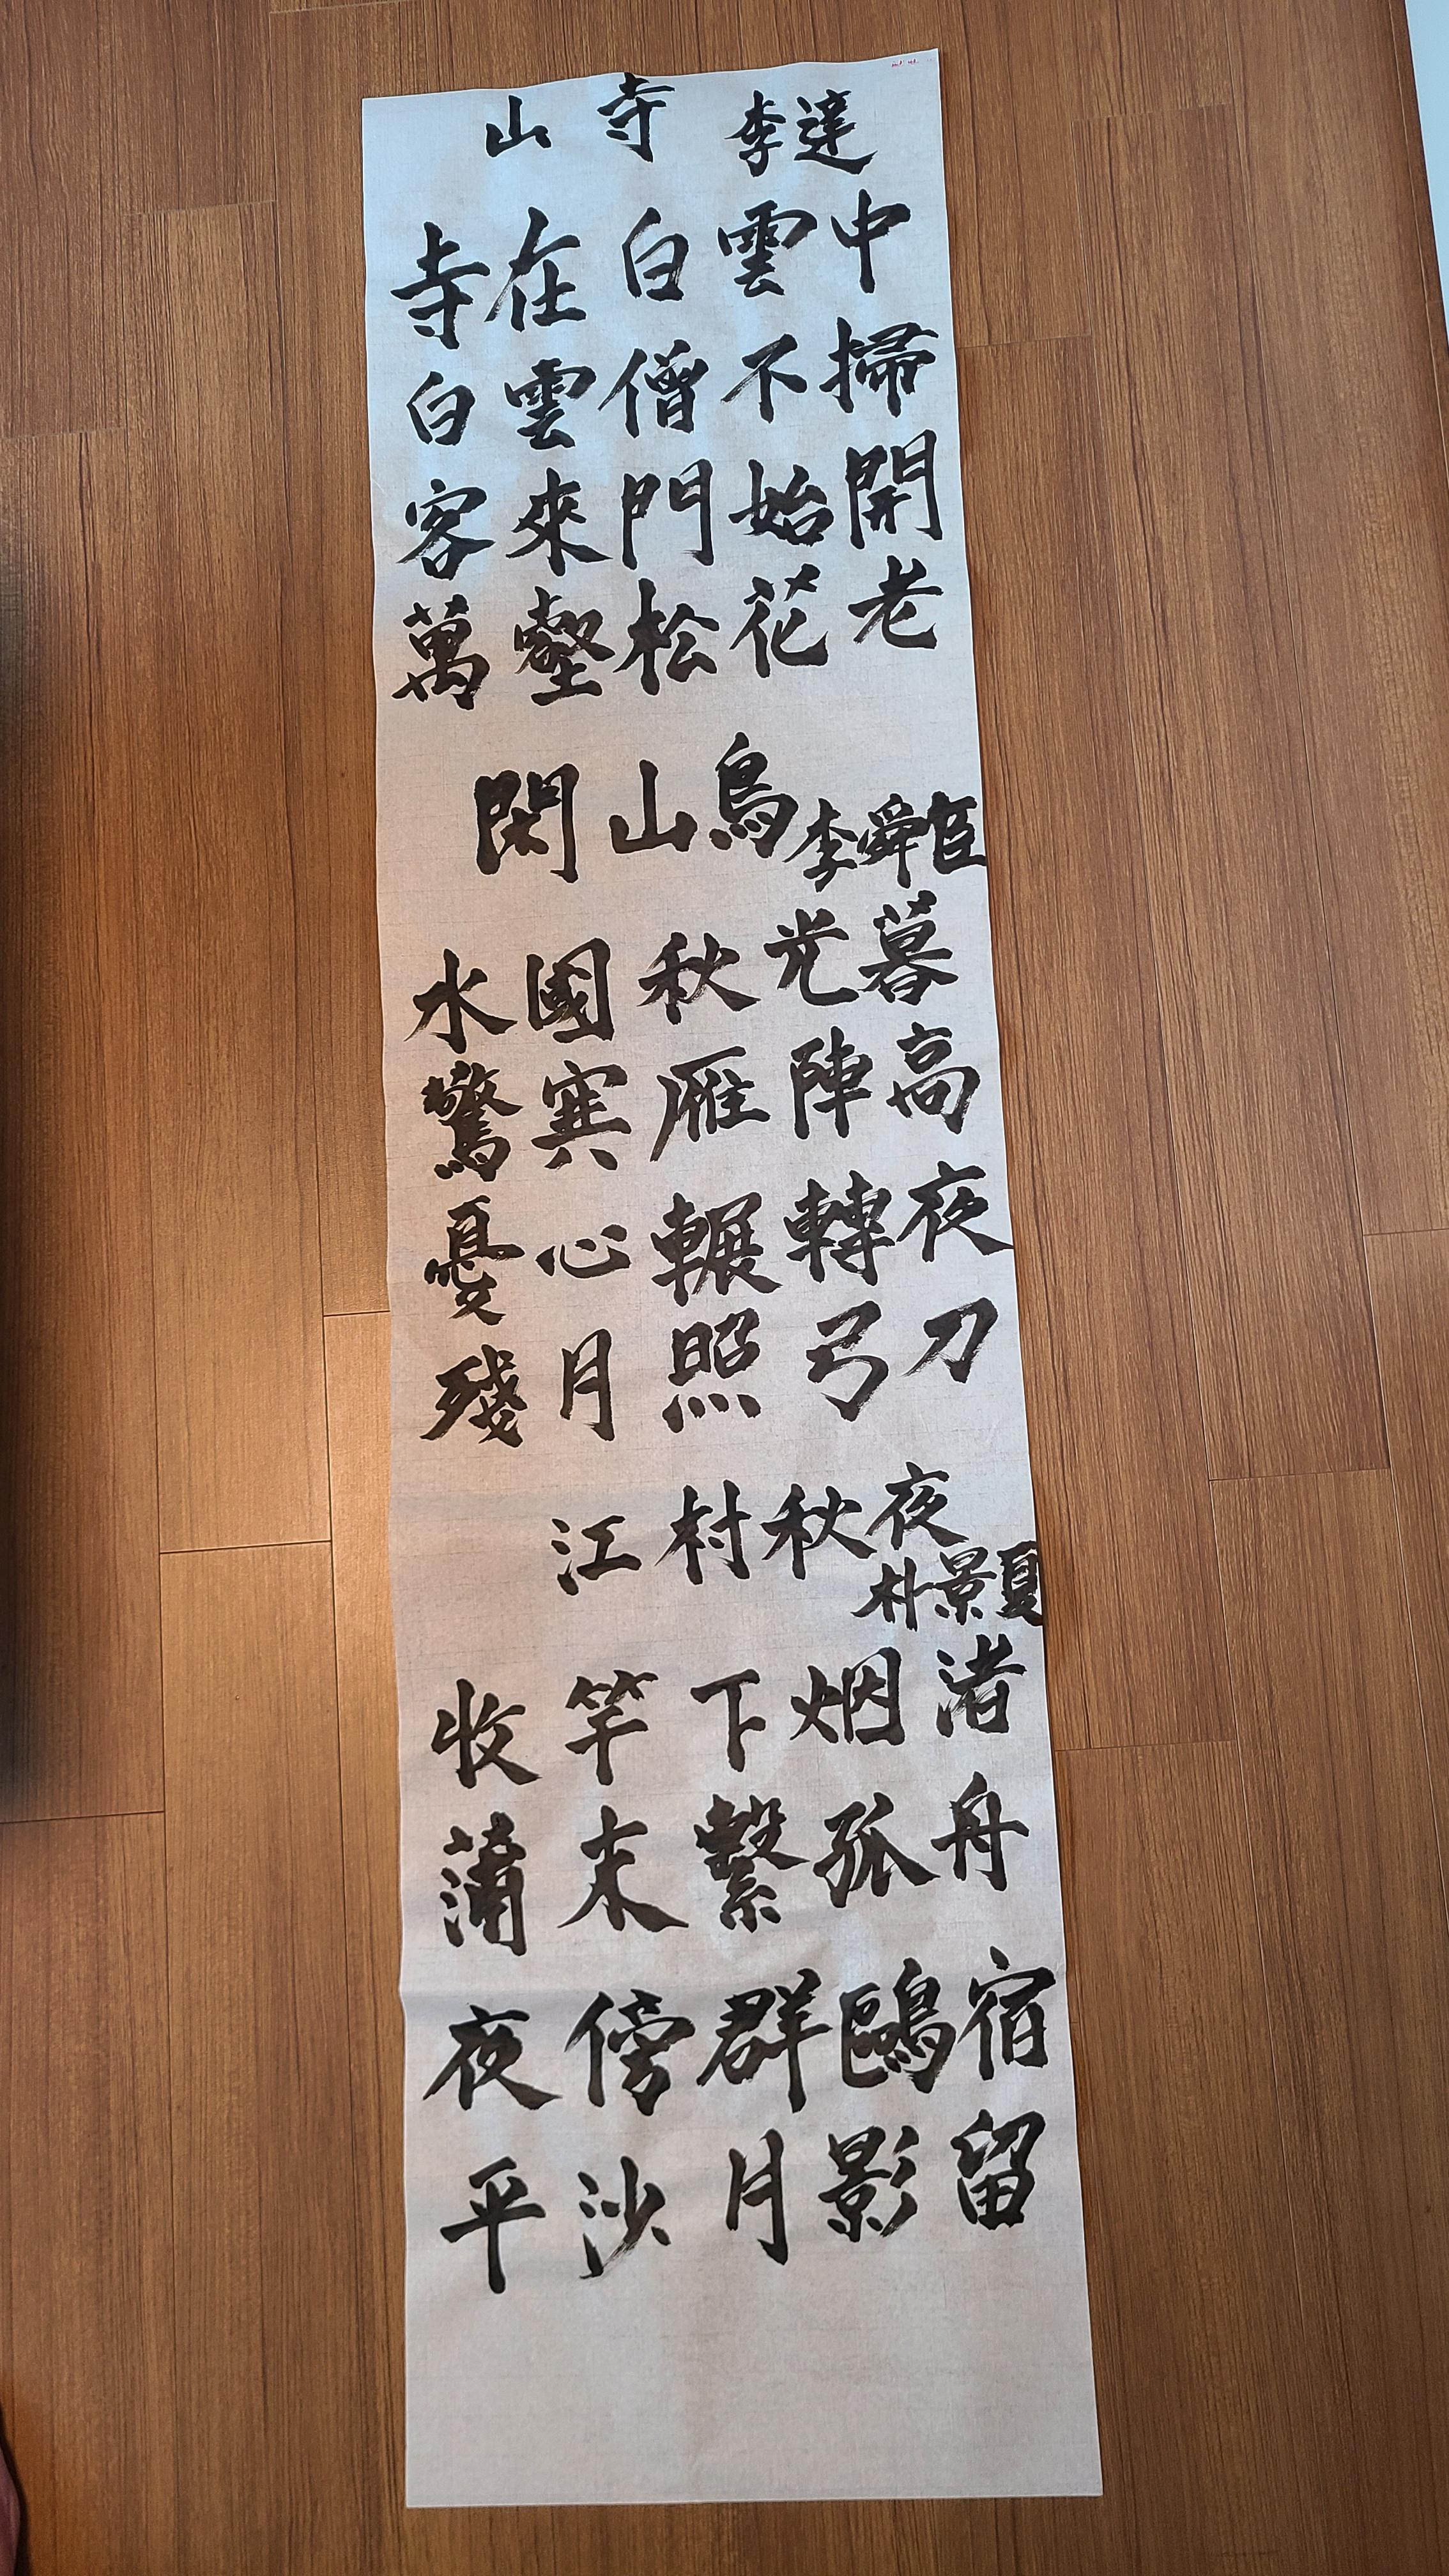 山寺 李達
寺在白雲中
白雲僧不掃
客來門始開
萬壑松花老
閑山島 李舜臣
水國秋光暮
驚寒雁陣高
憂心輾轉夜
殘月照弓刀
江村秋夜 朴景夏
收竿下烟渚
蒲末繫孤舟
夜傍群鷗宿
平沙月影留